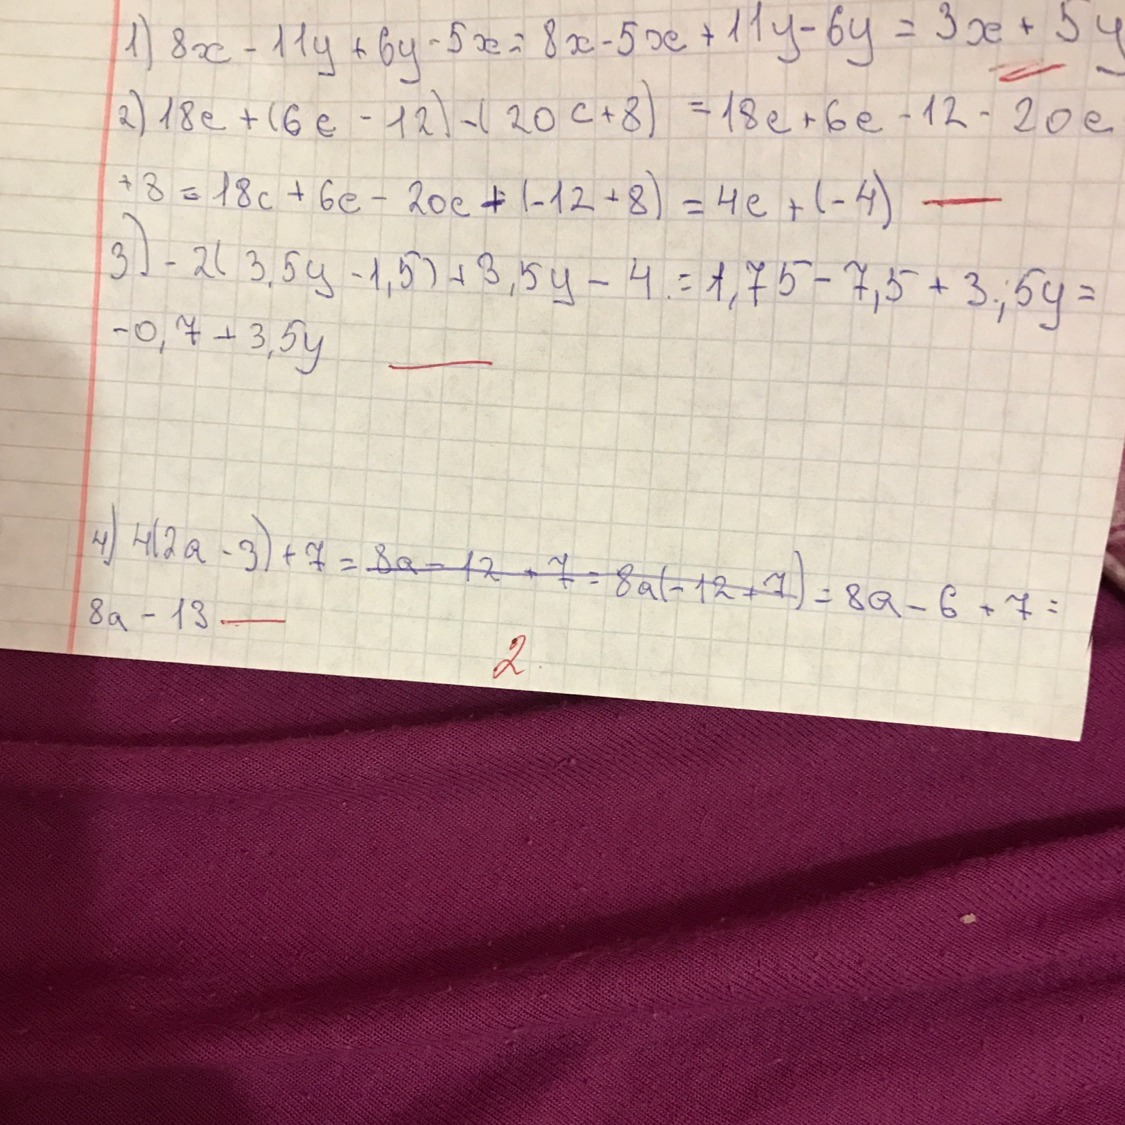 1) 8x - 11y + 6y - 5x = 8x - 5x + 11y - 6y = 3x + 5y
2) 18c + (6c - 12) - (20c + 8) = 18c + 6c - 12 - 20c
+8 = 18c + 6c - 20c + (-12 + 8) = 4c + (-4)
3) - 2(3,5y - 1,5) + 3,5y - 4 = 1,75 - 7,5 + 3,5y =
-0,7 + 3,5y
4) 4(2a - 3) + 7 = 8a - 12 + 7 = 8a(-12 + 7) = 8a - 6 + 7 =
8a - 13
2